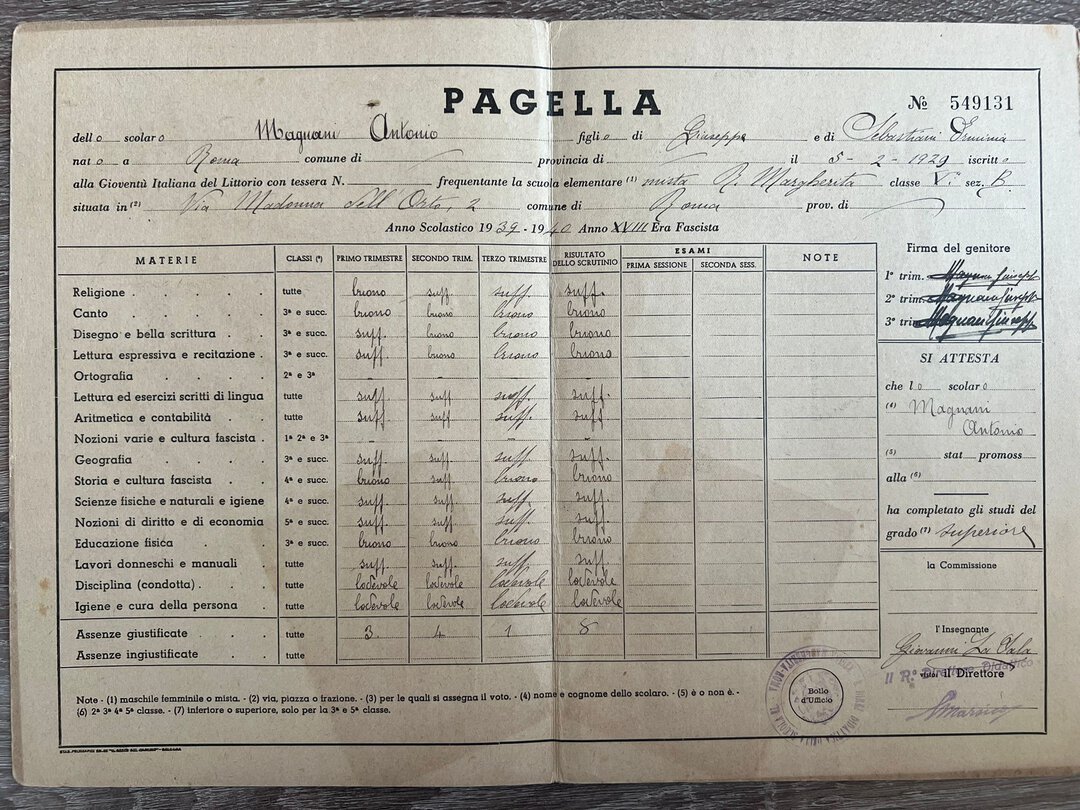 PAGELLA
№ 549131
dello scolaro Magnani Antonio figlio di Giuseppe e di Sebastiani Erminia
nato a Roma comune di provincia di il 5-2-1929 iscritto
alla Gioventù Italiana del Littorio con tessera N. frequentante la scuola elementare (1) mista R. Margherita classe Vª sez. B
situata in (2) Via Madonna dell'Orto, 2 comune di Roma prov. di
Anno Scolastico 1939-1940 Anno XVIII Èra Fascista
MATERIE CLASSI (³) PRIMO TRIMESTRE SECONDO TRIM. TERZO TRIMESTRE RISULTATO DELLO SCRUTINIO ESAMI PRIMA SESSIONE SECONDA SESS. NOTE
Religione tutte buono suff. suff. suff.
Canto 3ª e succ. buono buono buono buono
Disegno e bella scrittura 3ª e succ. suff. buono buono buono
Lettura espressiva e recitazione 3ª e succ. suff. buono buono buono
Ortografia 2ª e 3ª - - - -
Lettura ed esercizi scritti di lingua tutte suff. suff. suff. suff.
Aritmetica e contabilità tutte suff. suff. suff. suff.
Nozioni varie e cultura fascista 1ª 2ª e 3ª - - - -
Geografia 3ª e succ. suff. suff. suff. suff.
Storia e cultura fascista 4ª e succ. buono suff. buono buono
Scienze fisiche e naturali e igiene 4ª e succ. suff. suff. suff. suff.
Nozioni di diritto e di economia 5ª e succ. suff. suff. suff. suff.
Educazione fisica 3ª e succ. buono buono buono buono
Lavori donneschi e manuali tutte suff. suff. suff. suff.
Disciplina (condotta) tutte lodevole lodevole lodevole lodevole
Igiene e cura della persona tutte lodevole lodevole lodevole lodevole
Assenze giustificate tutte 3 4 1 8
Assenze ingiustificate tutte
Note - (1) maschile femminile o mista. - (2) via, piazza o frazione. - (3) per le quali si assegna il voto. - (4) nome e cognome dello scolaro. - (5) è o non è. -
(6) 2ª 3ª 4ª 5ª classe. - (7) inferiore o superiore, solo per la 3ª e 5ª classe.
Firma del genitore
1° trim. Magnani Giuseppe
2° trim. Magnani Giuseppe
3° trim. Magnani Giuseppe
SI ATTESTA
che lo scolaro
(4) Magnani
Antonio
(5) stat promoss
alla (6)
ha completato gli studi del
grado (7) superiore
la Commissione
l'Insegnante
Giovanni La Sala
visto: il Direttore
Il R.° Direttore Didattico
Bollo
d'Ufficio